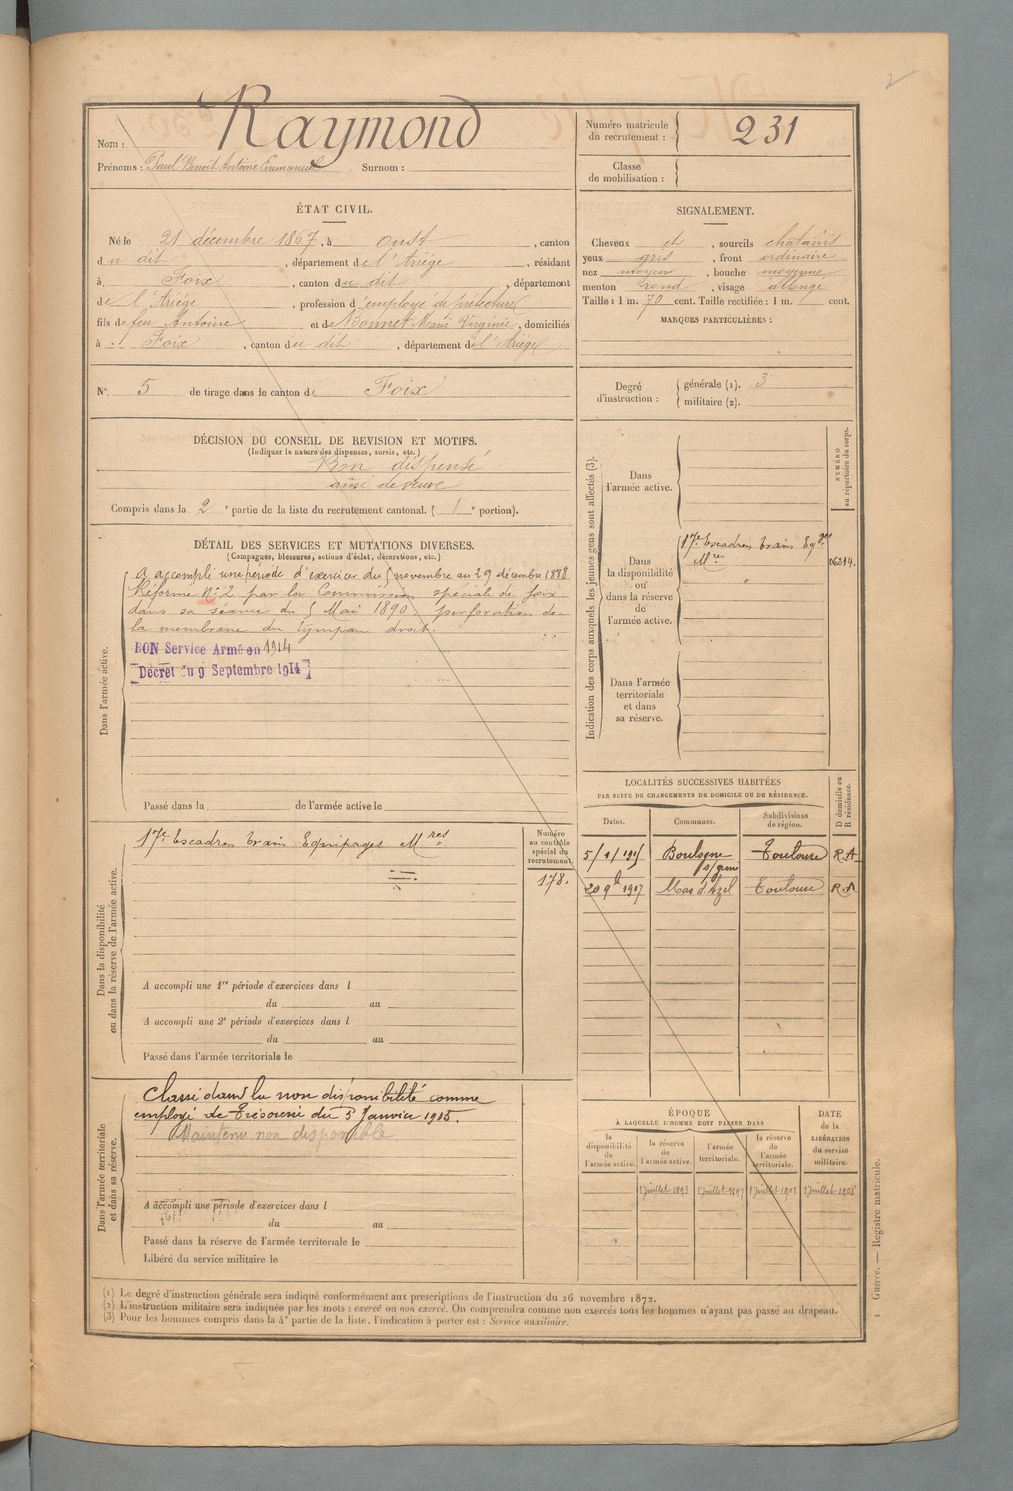 2
Nom : Raymond
Prénoms : Paul Benoit Antoine Emmanuel Surnom :
Numéro matricule du recrutement : 231
Classe de mobilisation :
ÉTAT CIVIL.
Né le 21 décembre 1867, à Oust, canton
du dit, département de l'Ariége, résidant
à Foix, canton du dit, département
de l'Ariége, profession d'employé de Préfecture
fils de feu Antoine et de Bonnet Marie Virginie, domiciliés
à Foix, canton du dit, département de l'Ariége
SIGNALEMENT.
Cheveux et, sourcils chatains
yeux gris, front ordinaire
nez moyen, bouche moyenne
menton rond, visage allongé
Taille : 1 m. 70 cent. Taille rectifiée : 1 m. cent.
MARQUES PARTICULIÈRES :
N° 5 de tirage dans le canton de Foix
Degré d'instruction : générale (1). 3
militaire (2).
DÉCISION DU CONSEIL DE REVISION ET MOTIFS.
(Indiquer la nature des dispenses, sursis, etc.)
Bon dispensé
ainé de veuve
Compris dans la 2e partie de la liste du recrutement cantonal. (1e portion).
DÉTAIL DES SERVICES ET MUTATIONS DIVERSES.
(Campagnes, blessures, actions d'éclat, décorations, etc.)
Dans l'armée active.
A accompli une période d'exercices du 5 novembre au 29 décembre 1888
Réformé N° 2 par la Commission spéciale de foix
dans sa séance du 5 Mai 1890, perforation de
la membrane du tympan droit.
BON Service Armé en 1914
Décret du 9 Septembre 1914
Passé dans la de l'armée active le
Indication des corps auxquels les jeunes gens sont affectés (3).
Dans l'armée active.
NUMÉRO au répertoire du corps.
Dans la disponibilité ou dans la réserve de l'armée active.
17e Escadron train Eqges
Mres
06214.
Dans l'armée territoriale et dans sa réserve.
Dans la disponibilité ou dans la réserve de l'armée active.
17e Escadron train Equipages Mres
Numéro au contrôle spécial du recrutement.
178.
A accompli une 1re période d'exercices dans l
du au
A accompli une 2e période d'exercices dans l
du au
Passé dans l'armée territoriale le
LOCALITÉS SUCCESSIVES HABITÉES
PAR SUITE DE CHANGEMENTS DE DOMICILE OU DE RÉSIDENCE.
Dates. Communes. Subdivisions de région. D domicile ou R résidence.
Boulogne s/gesse Toulouse R.A
Mas d'Azil Toulouse R.A
Dans l'armée territoriale et dans sa réserve.
Classé dans la non disponibilité comme
employé de Trésorerie du 5 Janvier 1905.
Maintenu non disponible
A accompli une période d'exercices dans l
du au
Passé dans la réserve de l'armée territoriale le
Libéré du service militaire le
ÉPOQUE
À LAQUELLE L'HOMME DOIT PASSER DANS
la disponibilité de l'armée active.
la réserve de l'armée active.
l'armée territoriale.
la réserve de l'armée territoriale.
DATE de la LIBÉRATION du service militaire.
1 juillet 1893 1 juillet 1897 1 juillet 1902 1 juillet 1908
(1) Le degré d'instruction générale sera indiqué conformément aux prescriptions de l'instruction du 26 novembre 1872.
(2) L'instruction militaire sera indiquée par les mots : exercé ou non exercé. On comprendra comme non exercés tous les hommes n'ayant pas passé au drapeau.
(3) Pour les hommes compris dans la 4e partie de la liste, l'indication à porter est : Service auxiliaire.
Guerre. — Registre matricule.